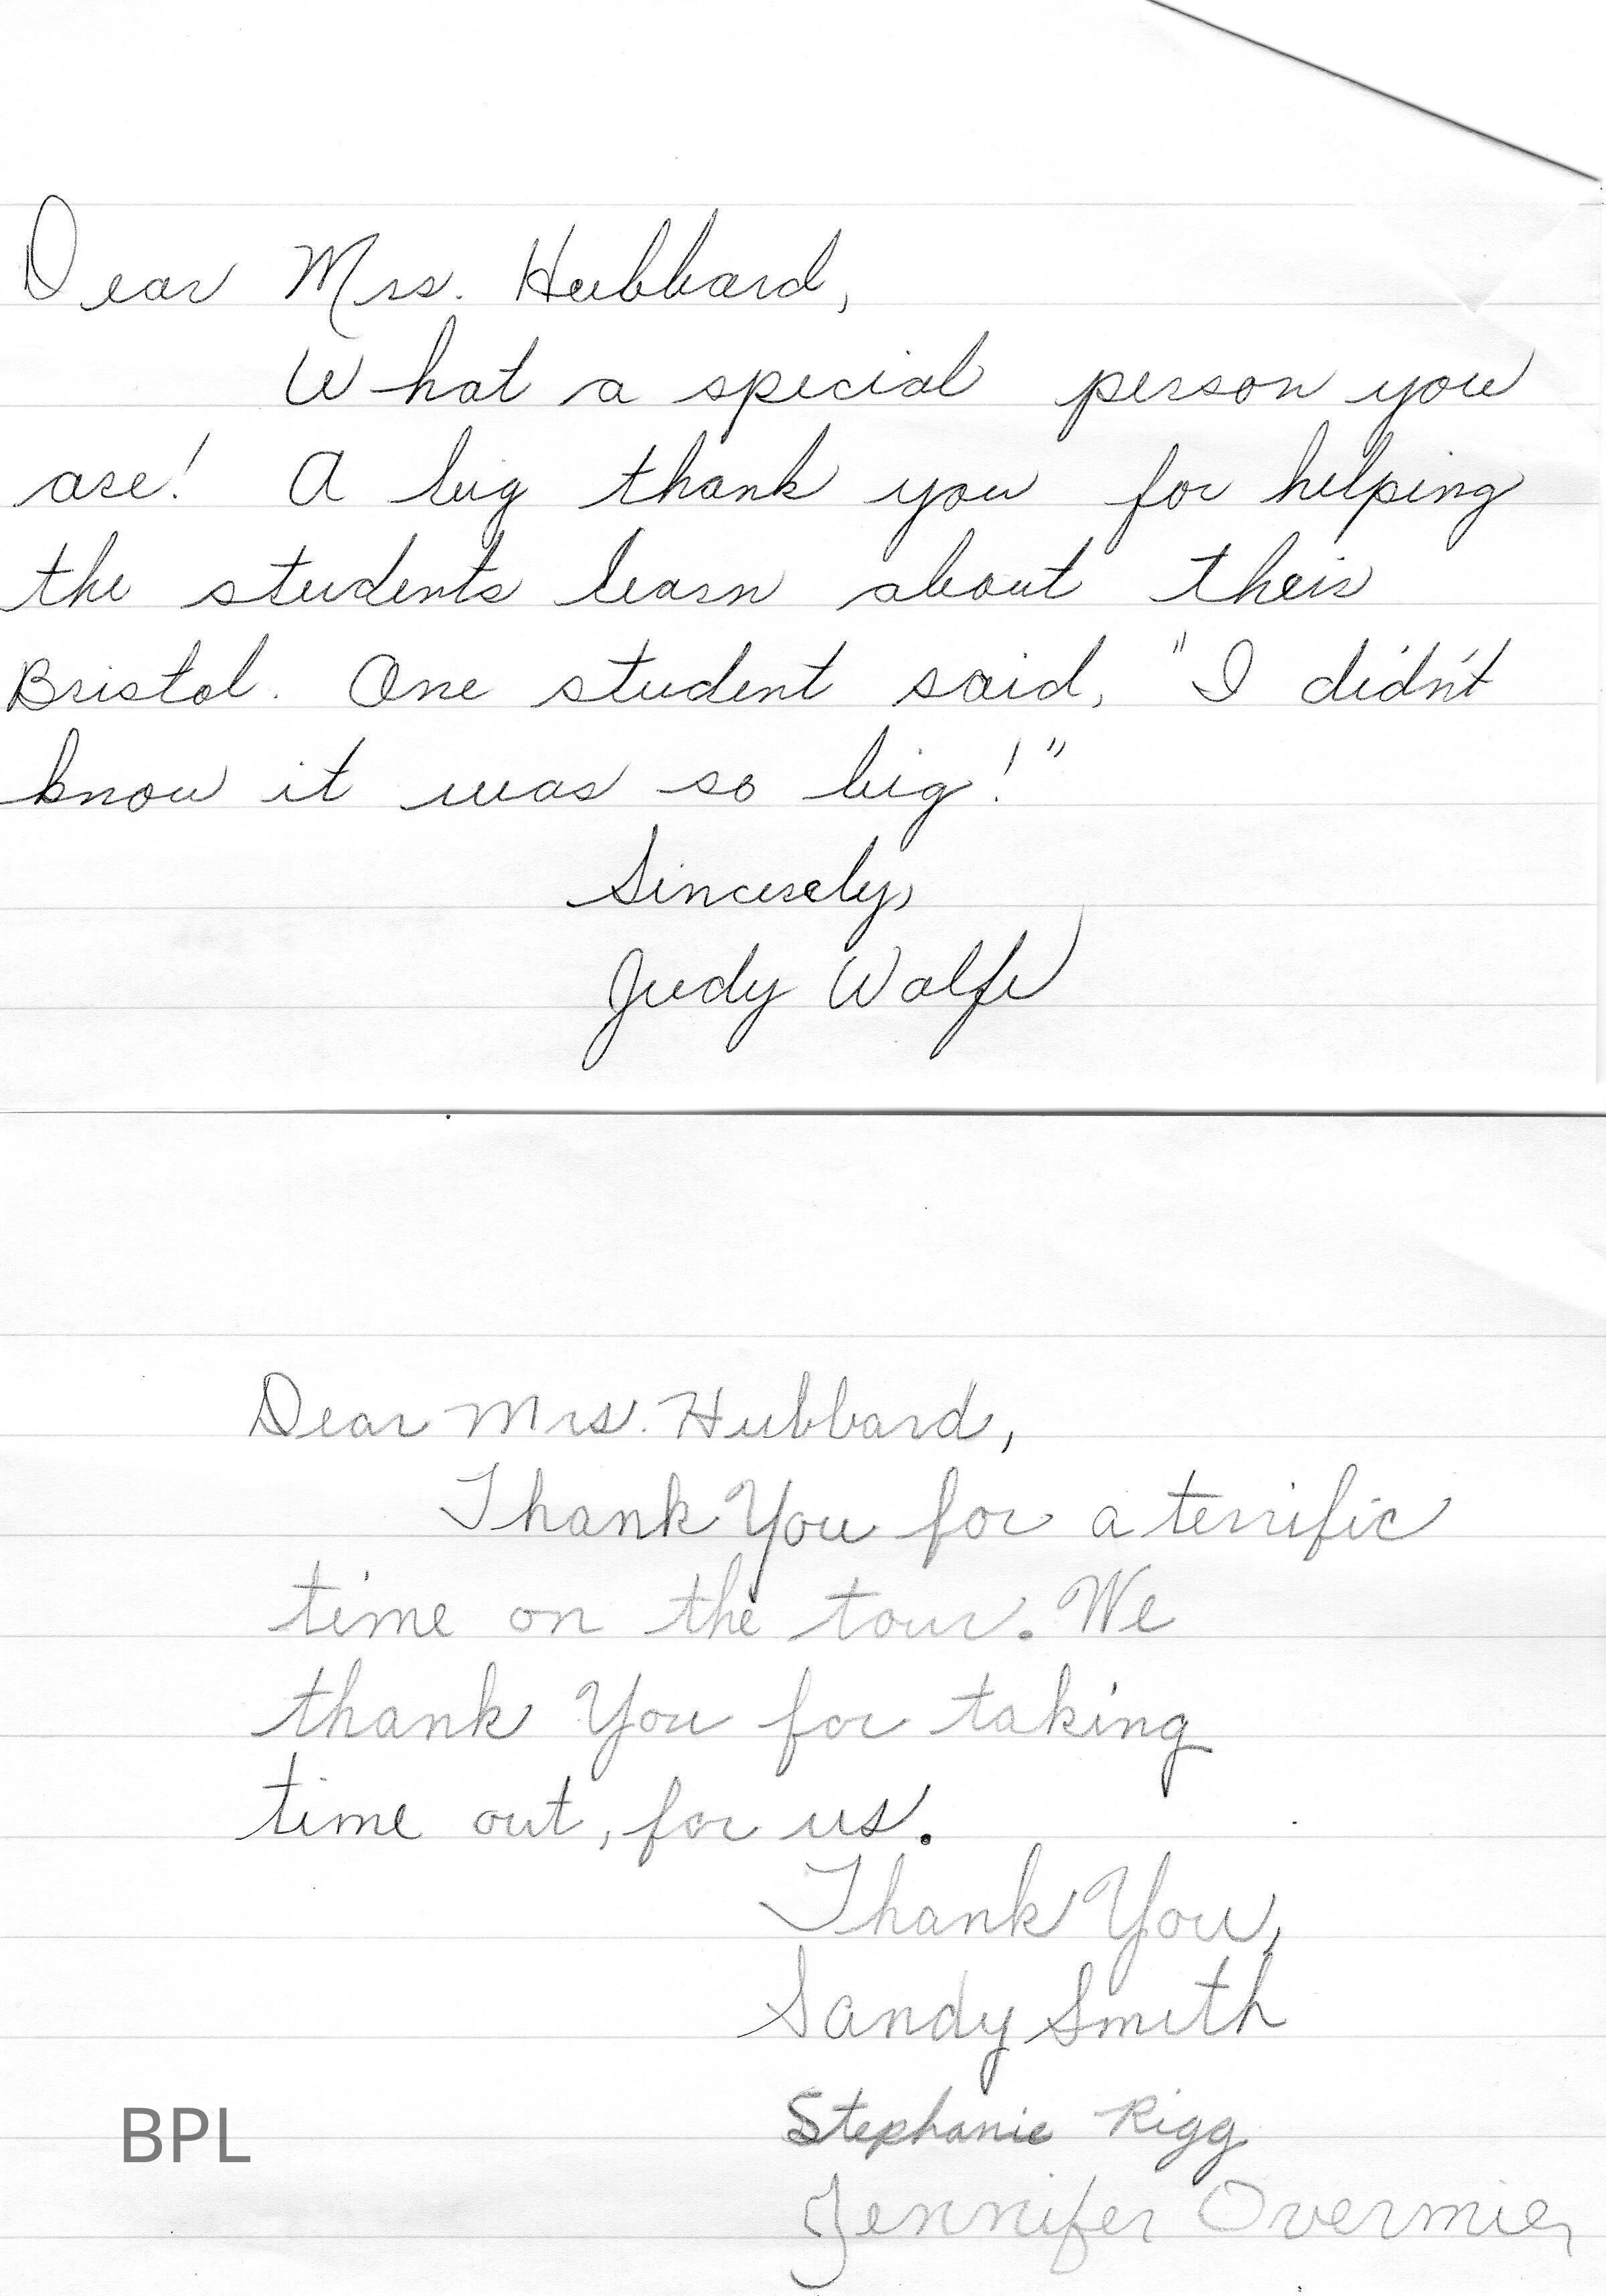 Dear Mrs. Hubbard,
What a special person you
are! A big thank you for helping
the students learn about their
Bristol. One student said, "I didn't
know it was so big!"
Sincerely,
Judy Wolfe
Dear Mrs. Hubbard,
Thank You for a terrific
time on the tour. We
thank You for taking
time out, for us.
Thank You,
Sandy Smith
Stephanie Rigg
Jennifer Overmier
BPL